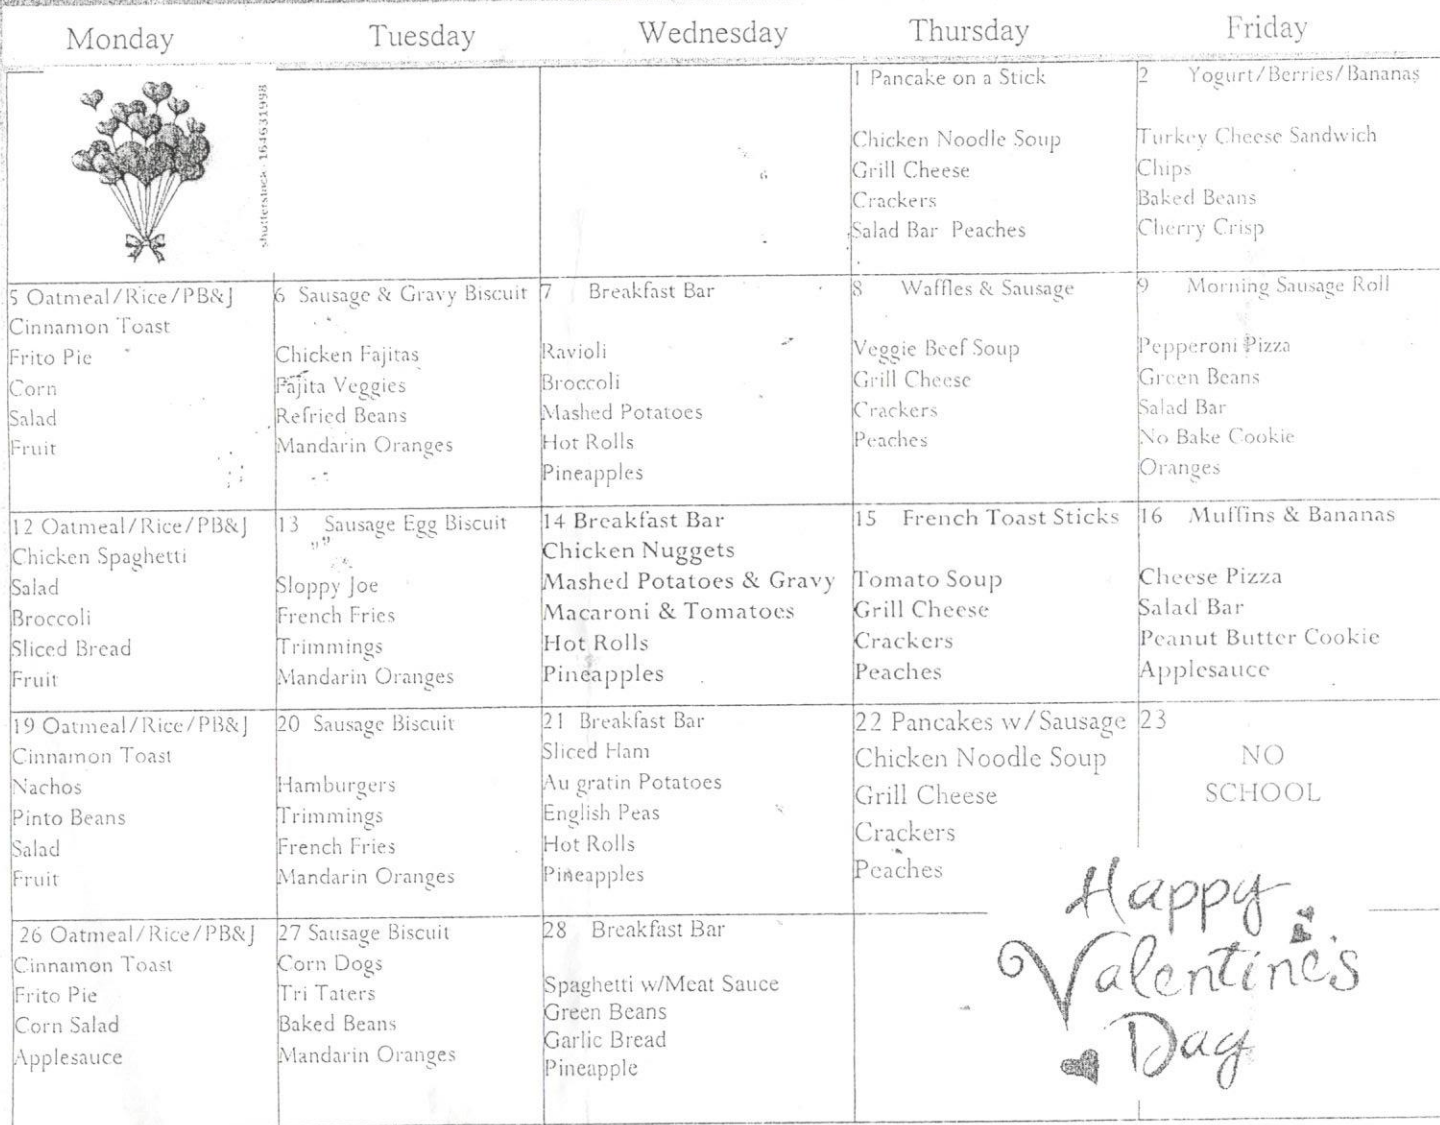 Monday
Tuesday
Wednesday
Thursday
Friday
shutterstock · 164631998
1 Pancake on a Stick
Chicken Noodle Soup
Grill Cheese
Crackers
Salad Bar Peaches
2 Yogurt/Berries/Bananas
Turkey Cheese Sandwich
Chips
Baked Beans
Cherry Crisp
5 Oatmeal/Rice/PB&J
Cinnamon Toast
Frito Pie
Corn
Salad
Fruit
6 Sausage & Gravy Biscuit
Chicken Fajitas
Fajita Veggies
Refried Beans
Mandarin Oranges
7 Breakfast Bar
Ravioli
Broccoli
Mashed Potatoes
Hot Rolls
Pineapples
8 Waffles & Sausage
Veggie Beef Soup
Grill Cheese
Crackers
Peaches
9 Morning Sausage Roll
Pepperoni Pizza
Green Beans
Salad Bar
No Bake Cookie
Oranges
12 Oatmeal/Rice/PB&J
Chicken Spaghetti
Salad
Broccoli
Sliced Bread
Fruit
13 Sausage Egg Biscuit
Sloppy Joe
French Fries
Trimmings
Mandarin Oranges
14 Breakfast Bar
Chicken Nuggets
Mashed Potatoes & Gravy
Macaroni & Tomatoes
Hot Rolls
Pineapples
15 French Toast Sticks
Tomato Soup
Grill Cheese
Crackers
Peaches
16 Muffins & Bananas
Cheese Pizza
Salad Bar
Peanut Butter Cookie
Applesauce
19 Oatmeal/Rice/PB&J
Cinnamon Toast
Nachos
Pinto Beans
Salad
Fruit
20 Sausage Biscuit
Hamburgers
Trimmings
French Fries
Mandarin Oranges
21 Breakfast Bar
Sliced Ham
Au gratin Potatoes
English Peas
Hot Rolls
Pineapples
22 Pancakes w/Sausage
Chicken Noodle Soup
Grill Cheese
Crackers
Peaches
23
NO
SCHOOL
26 Oatmeal/Rice/PB&J
Cinnamon Toast
Frito Pie
Corn Salad
Applesauce
27 Sausage Biscuit
Corn Dogs
Tri Taters
Baked Beans
Mandarin Oranges
28 Breakfast Bar
Spaghetti w/Meat Sauce
Green Beans
Garlic Bread
Pineapple
Happy
Valentine's
Day